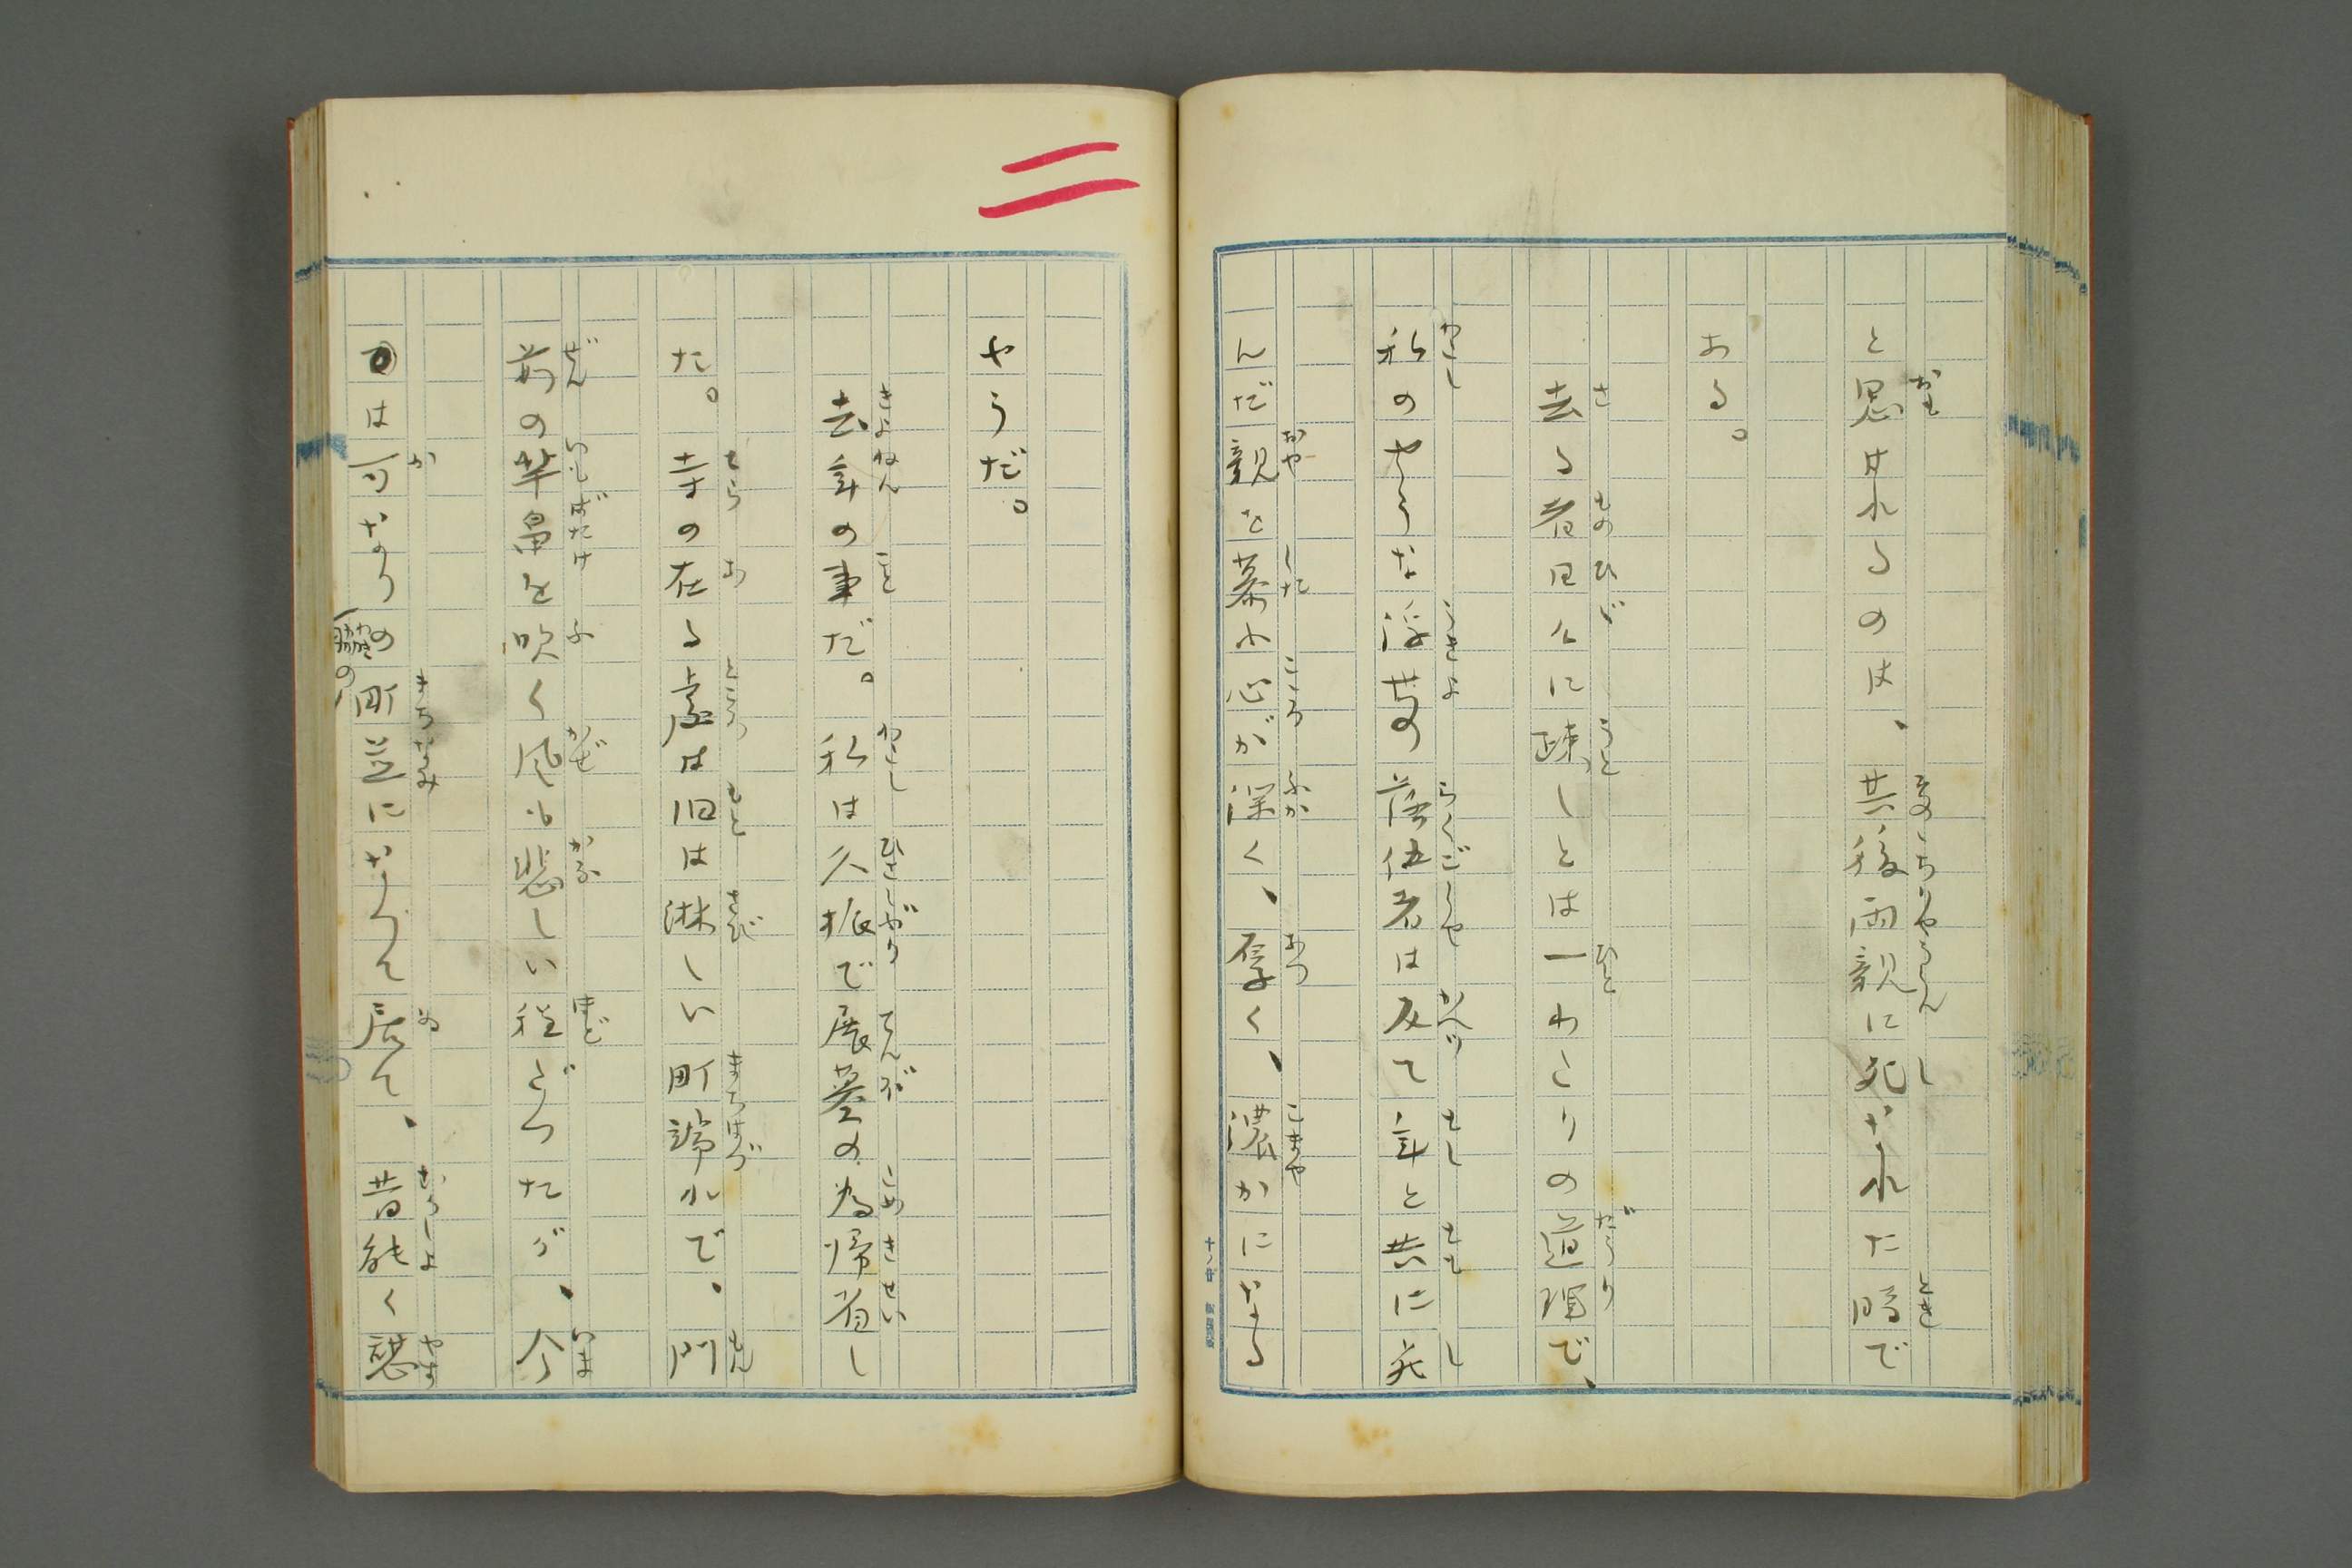 と思はれるのは、其後両親に死なれた時で
ある。
去る者日々に疎しとは一わたりの道理で、
私のやうな浮世の落伍者は反て年と共に死
んだ親を慕ふ心が深く、厚く、濃かになる
二
やうだ。
去年の事だ。私は久振で展墓の為帰省し
た。寺の在る処は旧は淋しい町端れで、門
前の芋畠を吹く風も悲しい程だつたが、今
は可なりの町並になつて居て、昔能く憩